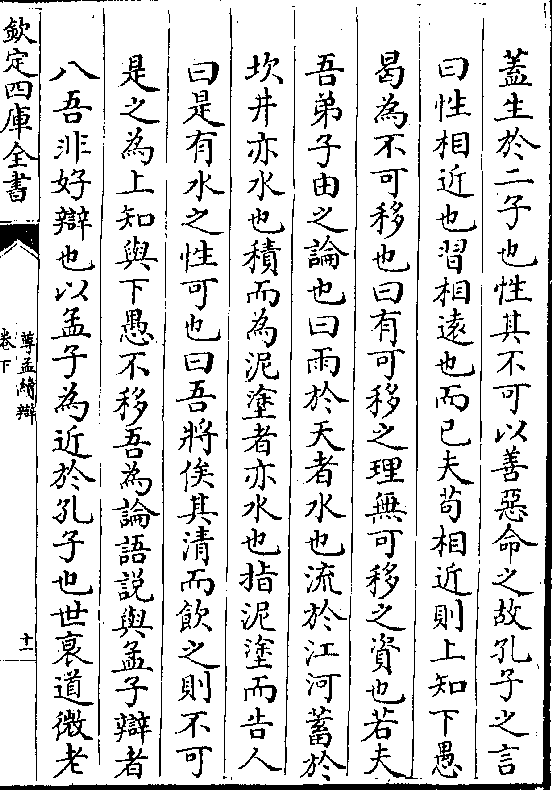 蓋生於二子也性其不可以善惡命之故孔子之言
曰性相近也習相遠也而已夫苟相近則上知下愚
曷為不可移也曰有可移之理無可移之資也若夫
吾弟子由之論也曰雨於天者水也流於江河蓄於
坎井亦水也積而為泥塗者亦水也指泥塗而告人
曰是有水之性可也曰吾將俟其清而飲之則不可
是之為上知與下愚不移吾為論語説與孟子辯者
八吾非好辯也以孟子為近於孔子也世衰道微老
欽定四庫全書
尊孟續辯
卷下
十一